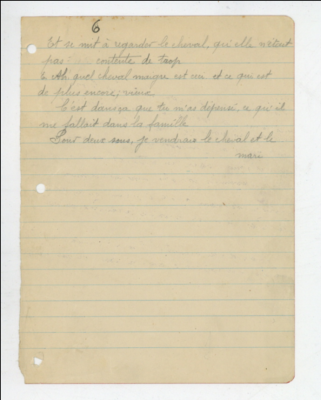 6
Et se mit à regarder le cheval, qui elle n'était
pas contente de trop
E Ah quel cheval maigre est ceu et ce qui est
de plus encore; vieux
C'est dansque que tu m'as dépensé, ce qu'il
me fallait dans la famille
Pour deux sous, je vendrais le cheval et le
mari